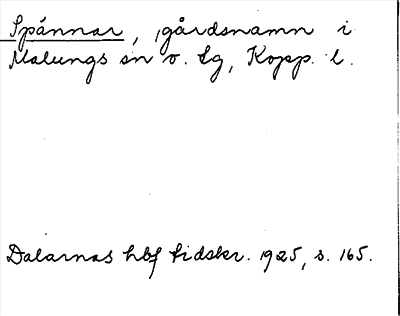 Spännar, gårdsnamn i
Malungs sn o. tg, Kopp. l.
Dalarnas hbf tidskr. 1925, s. 165.